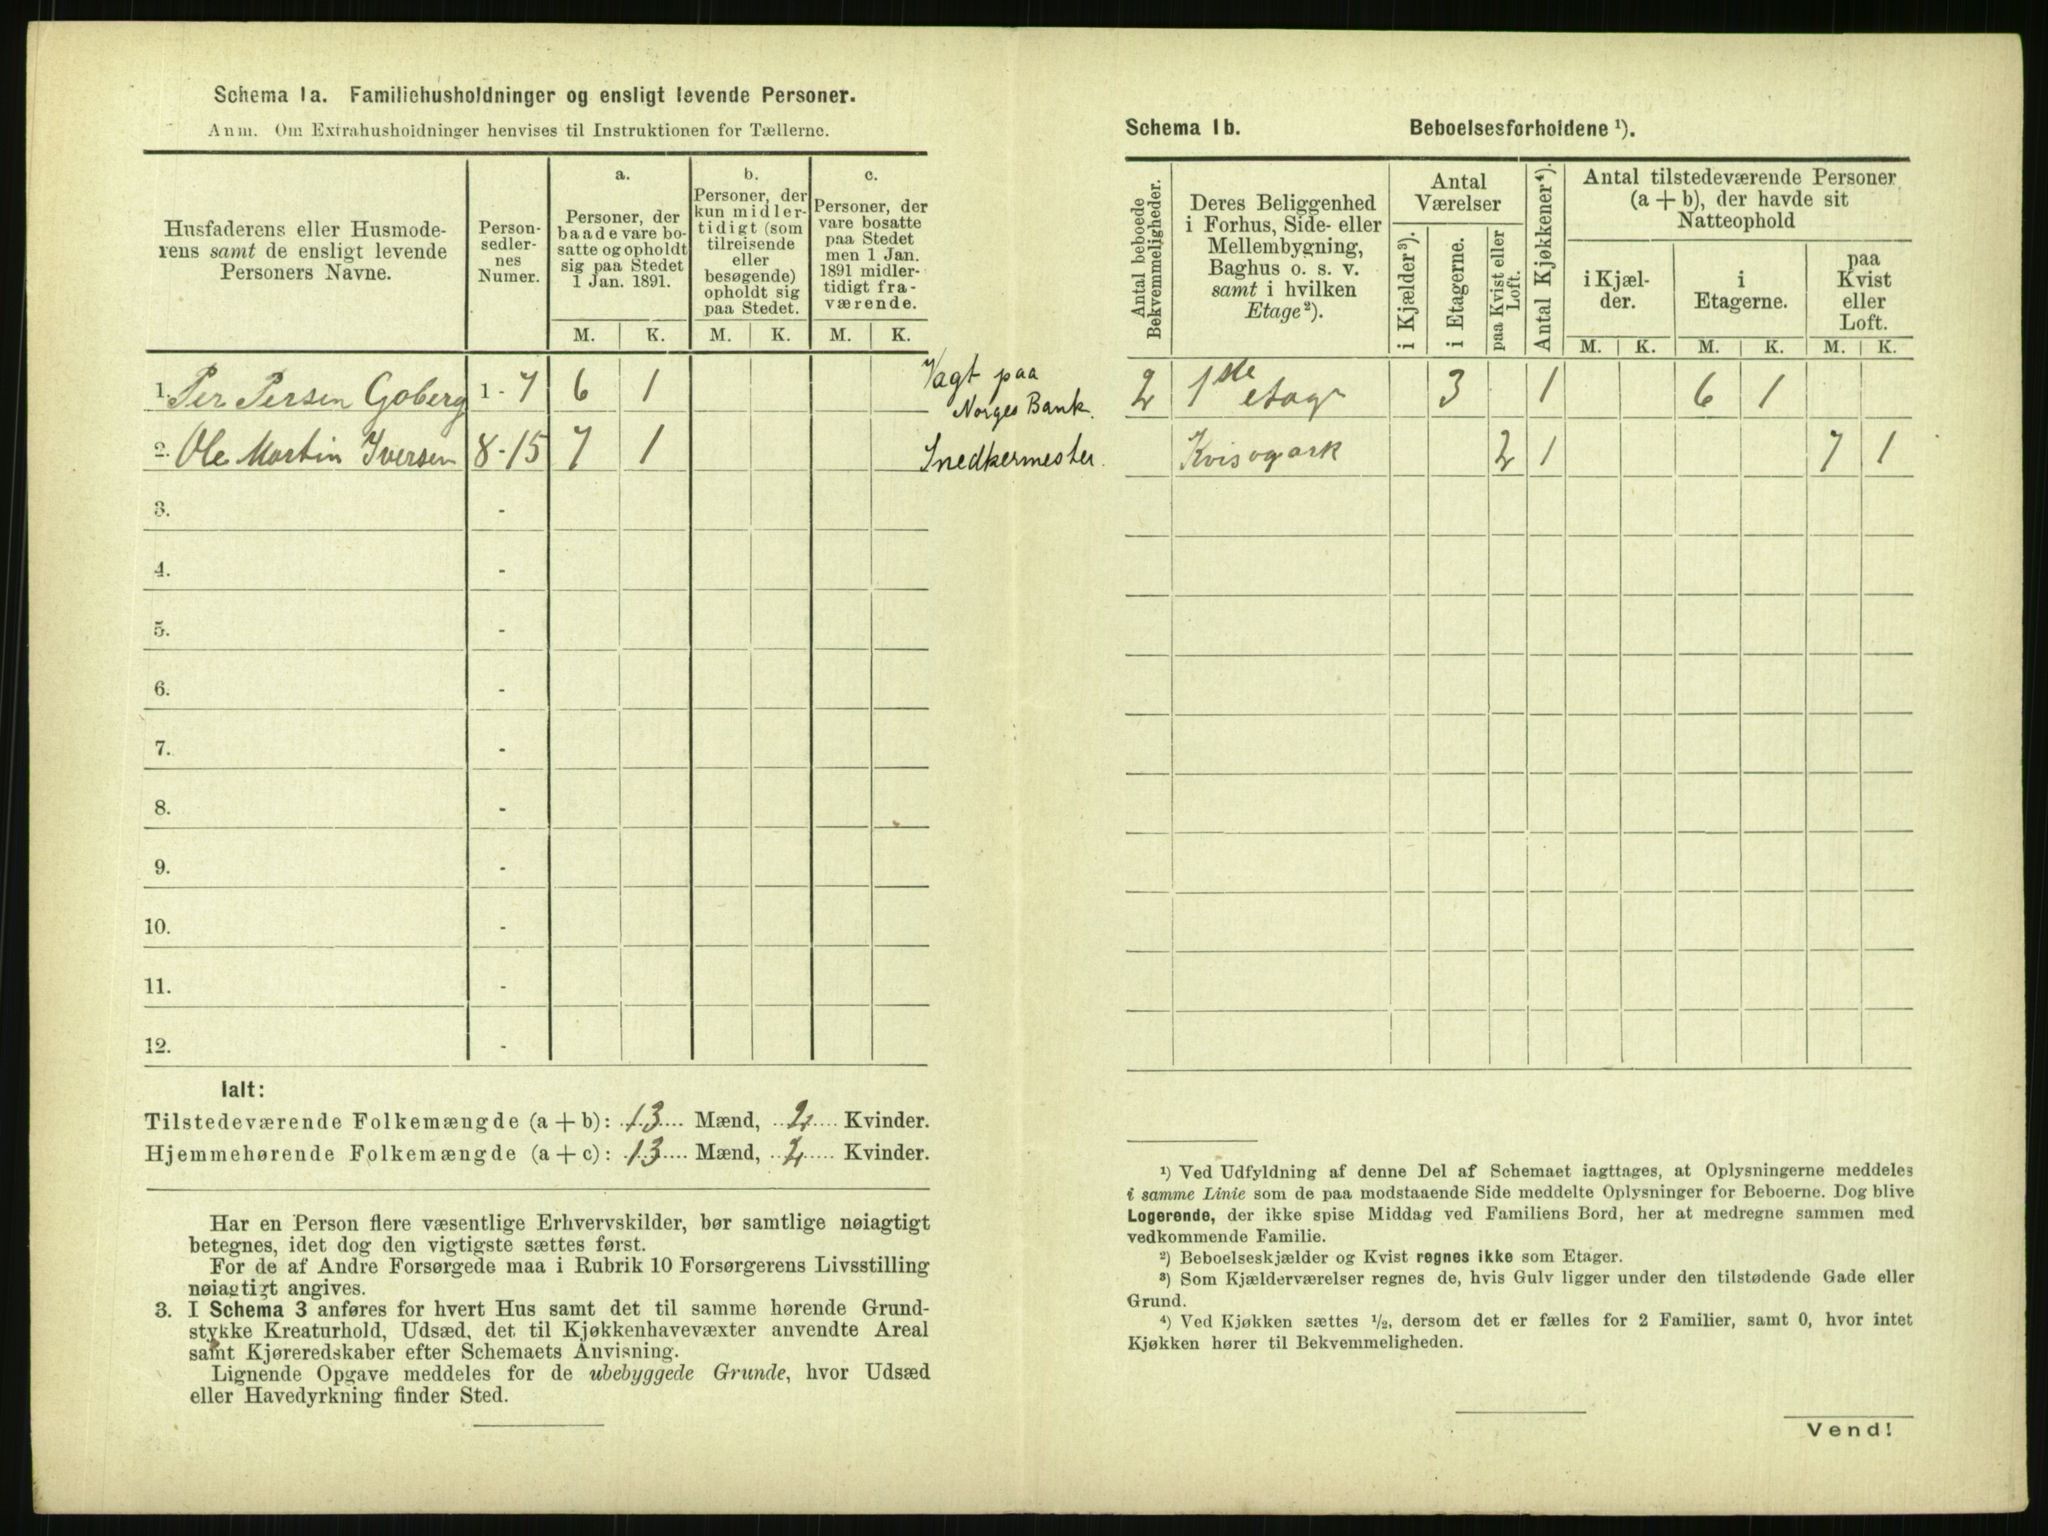 Schema 1a. Familiehusholdninger og ensligt levende Personer.
Anm. Om Extrahusholdninger henvises til Instruktionen for Tællerne.
Husfaderens eller Husmoderens samt de ensligt levende Personers Navne.
Person-sedler-nes Numer.
a.
Personer, der baade vare bosatte og opholdt sig paa Stedet 1 Jan. 1891.
b.
Personer, der kun midlertidigt (som tilreisende eller besøgende) opholdt sig paa Stedet.
c.
Personer, der vare bosatte paa Stedet men 1 Jan. 1891 midlertidigt fraværende.
M. K. M. K. M. K.
1. Per Persen Goberg 1 - 7 6 1 Vagt paa Norges Bank.
2. Ole Martin Iversen 8 - 15 7 1 Snedkermester.
3. -
4. -
5. -
6. -
7. -
8. -
9. -
10. -
11. -
12. -
Ialt:
Tilstedeværende Folkemængde (a + b): 13 Mænd, 2 Kvinder.
Hjemmehørende Folkemængde (a + c): 13 Mænd, 2 Kvinder.
Har en Person flere væsentlige Erhvervskilder, bør samtlige nøiagtigt
betegnes, idet dog den vigtigste sættes først.
For de af Andre Forsørgede maa i Rubrik 10 Forsørgerens Livsstilling
nøiagtigt angives.
3. I Schema 3 anføres for hvert Hus samt det til samme hørende Grund-
stykke Kreaturhold, Udsæd, det til Kjøkkenhavevæxter anvendte Areal
samt Kjøreredskaber efter Schemaets Anvisning.
Lignende Opgave meddeles for de ubebyggede Grunde, hvor Udsæd
eller Havedyrkning finder Sted.
Schema 1b. Beboelsesforholdene ¹).
Antal beboede Bekvemmeligheder.
Deres Beliggenhed i Forhus, Side- eller Mellembygning, Baghus o. s. v. samt i hvilken Etage ²).
Antal Værelser
i Kjælder ³).
i Etagerne.
paa Kvist eller Loft.
Antal Kjøkkener ⁴).
Antal tilstedeværende Personer (a + b), der havde sit Natteophold
i Kjælder.
i Etagerne.
paa Kvist eller Loft.
M. K. M. K. M. K.
2 1ste etage 3 1 6 1
Kvis og ark 2 1 7 1
¹) Ved Udfyldning af denne Del af Schemaet iagttages, at Oplysningerne meddeles
i samme Linie som de paa modstaaende Side meddelte Oplysninger for Beboerne. Dog blive
Logerende, der ikke spise Middag ved Familiens Bord, her at medregne sammen med
vedkommende Familie.
²) Beboelseskjælder og Kvist regnes ikke som Etager.
³) Som Kjælderværelser regnes de, hvis Gulv ligger under den tilstødende Gade eller
Grund.
⁴) Ved Kjøkken sættes ½, dersom det er fælles for 2 Familier, samt 0, hvor intet
Kjøkken hører til Bekvemmeligheden.
Vend!